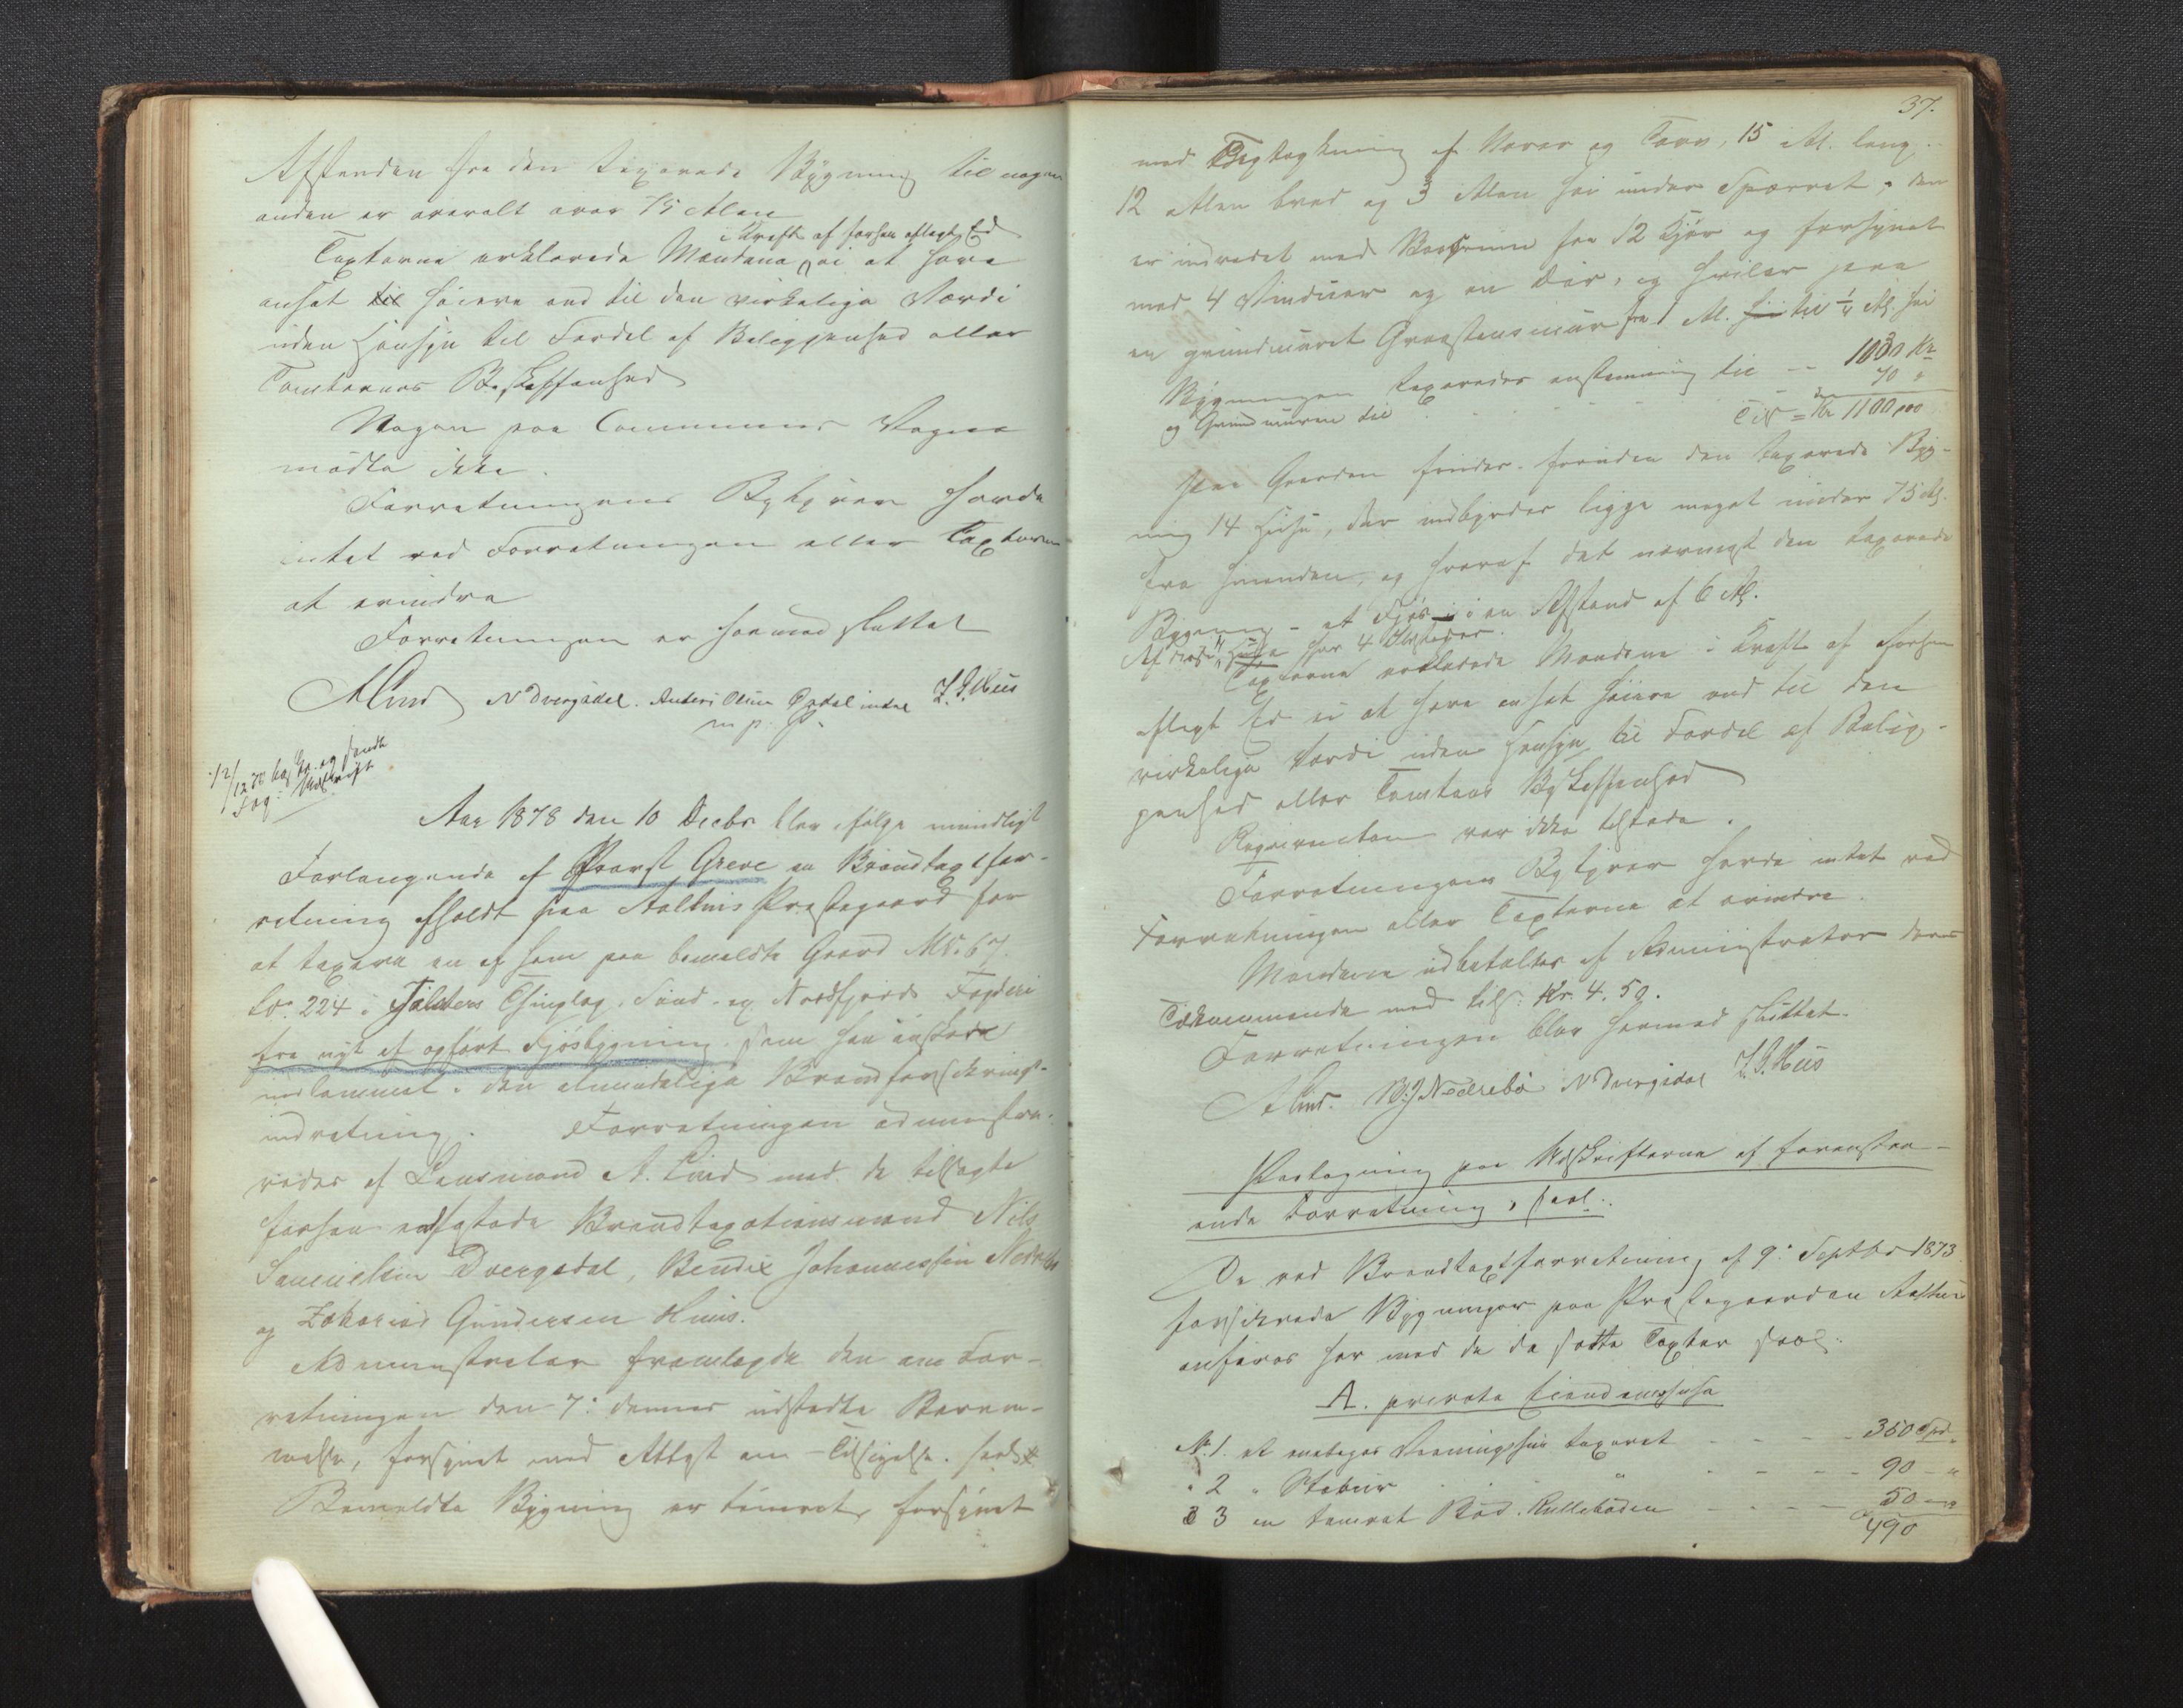 Afstanden fra den taxerede Bygning til nogen
anden er overalt over 75 Alen
i Kraft af forhen aflagt Ed
Taxterne erklærede Mændene ei at have
ansat til høiere end til den virkelige Værdi
uden Hensyn til Fordel af Beliggenhed eller
Tomternes Beskaffenhed
Nogen paa Communens Vegne
mødte ikke.
Forretningens Bestyrer havde
intet ved Forretningen eller Taxterne
at erindre
Forretningen er hermed sluttet
ALind N Dvergsdal. Anders Olsen Årdal Z. G. Huus
m. p. P.
12/12 78 Udskrift
Aar 1878 den 10 Decbr blev ifølge mundligt
Forlangende af Provst Greve en Brandtaxtfor-
retning afholdt paa Aalhus Præstegaard for
at taxere en af ham paa bemeldte Gaard M.N. 67.
Lb. 224 i Jølsters Thinglag, Sønd- og Nordfjords Fogderi
fra nyt af opført Fjøsbygning som han ønskede
indlemmet i den almindelige Brandforsikrings-
indretning. Forretningen administre-
redes af Lensmand A. Lind med de tilsagte
forhen edfæstede Brandtaxationsmænd Nils
Samuelsen Dvergsdal, Bendix Johannessen Nedrebø
og Zakarias Gundersen Huus.
Administrator fremlagde den om For-
retningen den 7: dennes udstedte Beram-
melse, forsynet med Attest om Tilsigelse. saal:
Bemeldte Bygning er tømret, forsynet
37.
med Tagtækning af Næver og Torv, 15 Al. lang.
12 Alen bred og 3 Alen høi under Sperret, den
er indredet med Baasrum for 12 Kjør og forsynet
med 4 Vinduer og en Dør, og hviler paa
en grundmuret Graastensmur fra 1 Al. til 1/4 Al. høi
Bygningen taxeredes enstemmig til - - 1030 Kr
og Grundmuren til 70 "
Tils = Kr 1100,00
Paa Gaarden findes foruden den taxerede Byg-
ning 14 Huse, der indbyrdes ligge meget under 75 Al.
fra hinanden, og hvoraf det nærmest den taxerede
Bygning - et Fjøs - i en Afstand af 6 Al.
Af disse Huse har 4 Ildsteder.
Taxterne erklærede Mændene i Kraft af forhen
aflagt Ed ei at have ansat høiere end til den
virkelige Værdi uden Hensyn til Fordel af Belig-
genhed eller Tomtens Beskaffenhed
Reqvirenten var ikke tilstede.
Forretningens Bestyrer havde intet ved
Forretningen eller Taxterne at erindre.
Mændene udbetaltes af Administrator deres
Tilkommende med tils: Kr. 4. 50.
Forretningen blev hermed sluttet.
A Lind. B. J Nedrebø N Dvergsdal Z. G. Huus
Paategning paa Udskrifterne af foranstaa-
ende Forretning, saal:
De ved Brandtaxtforretning af 9: Septbr 1873
forsikrede Bygninger paa Præstegaarden Aalhus
anføres her med de da satte Taxter saal:
A. private Eiendomshuse
No. 1. et Vaaningshus taxeret - - - - 350 Spd.
" 2 " Stabur " - - - 90 - "
" 3 en tømret Bod. Rulleboden - - - - 50 - "
490